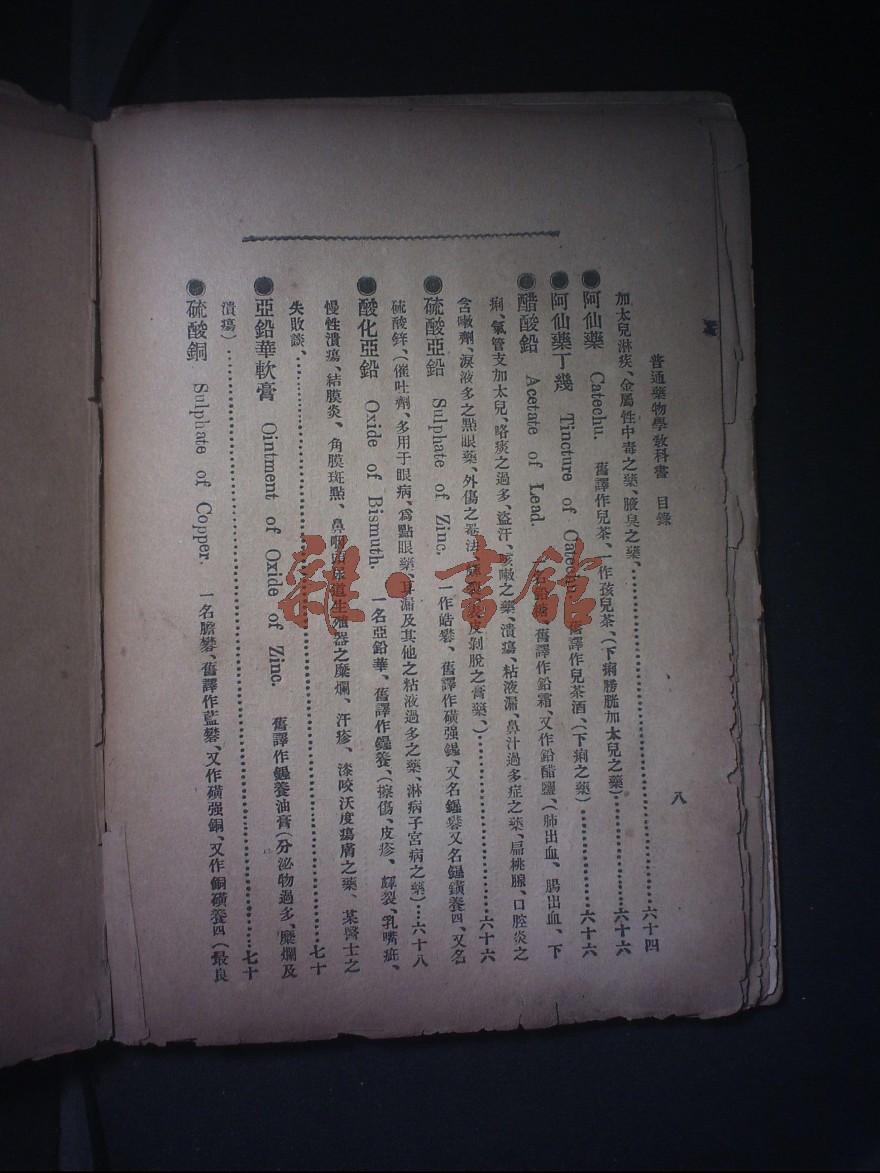 普通藥物學敎科書 目錄
八
加太兒淋疾、金屬性中毒之藥、腋臭之藥、…六十四
●阿仙藥 Catechu. 舊譯作兒茶、一作孩兒茶、(下痢勝胱加太兒之藥)…六十六
●阿仙藥丁幾 Tincture of Catechu. 舊譯作兒茶酒、(下痢之藥)…六十六
●醋酸鉛 Acetate of Lead. 舊譯作鉛霜、又作鉛醋鹽、(肺出血、腸出血、下
痢、氣管支加太兒、咯痰之過多、盜汗、咳嗽之藥、潰瘍、粘液漏、鼻汁過多症之藥、扁桃腺、口腔炎之
含嗽劑、淚液多之點眼藥、外傷之罨法、皮剝脫之膏藥、)…六十六
●硫酸亞鉛 Sulphate of Zinc. 一作皓礬、舊譯作磺强鋅、又名鋅礬又名鋅鑛養四、又名
硫酸鋅、(催吐劑、多用于眼病、爲點眼藥、耳漏及其他之粘液過多之藥、淋病子宮病之藥)…六十八
●酸化亞鉛 Oxide of Bismuth. 一名亞鉛華、舊譯作鋅養、(擦傷、皮疹、皹裂、乳嘴疵、
慢性潰瘍、結膜炎、角膜斑點、鼻咽頭尿道生殖器之糜爛、汗疹、漆咬沃度瘍膚之藥、某醫士之
失敗談、…七十
●亞鉛華軟膏 Ointment of Oxide of Zinc. 舊譯作鋅養油膏(分泌物過多、糜爛及
潰瘍)…七十
●硫酸銅 Sulphate of Copper. 一名膽礬、舊譯作藍礬、又作磺强銅、又作銅磺養四(最良
雜·書館